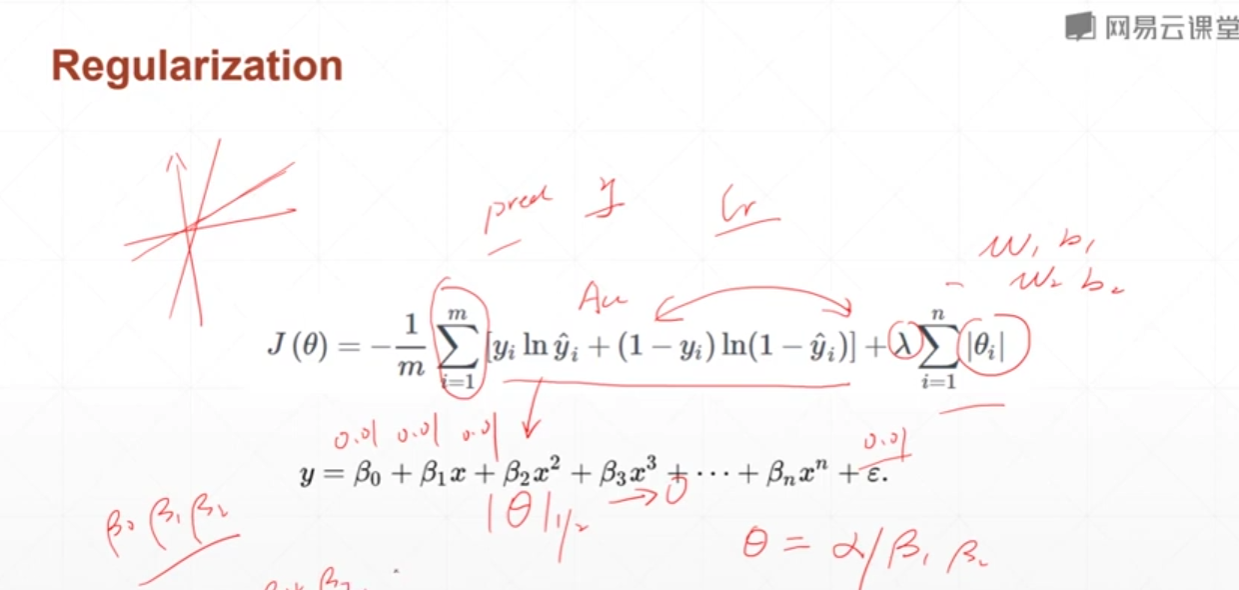 网易云课堂
Regularization
pred y
w₁ b₁
w₂ b₂
J(θ) = −1/m ∑_{i=1}^{m} [y_i ln ŷ_i + (1 − y_i) ln(1 − ŷ_i)] + λ ∑_{i=1}^{n} |θ_i|
0.01 0.01 0.01 0.01
y = β₀ + β₁x + β₂x² + β₃x³ + ⋯ + β_n xⁿ + ε.
|θ|₁/₂ → 0
β₀ β₁ β₂
θ = α/β₁ β₂